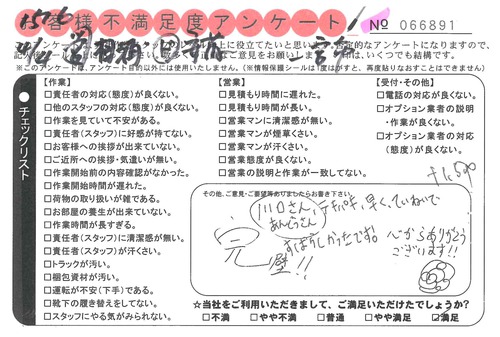 お客様不満足度アンケート
№ 066891
※このアンケートは、アンケート目的以外には使用いたしません。(※情報保護シールは1度はがすと、再度貼りなおすことはできません)
●チェックリスト
【作業】
□責任者の対応(態度)が良くない。
□他のスタッフの対応(態度)が良くない。
□作業を見ていて不安がある。
□責任者(スタッフ)に好感が持てない。
□お客様への挨拶が出来ていない。
□ご近所への挨拶・気遣いが無い。
□作業開始前の内容確認がなかった。
□作業開始時間が遅れた。
□荷物の取り扱いが雑である。
□お部屋の養生が出来ていない。
□作業時間が長すぎる。
□責任者(スタッフ)に清潔感が無い。
□責任者(スタッフ)が汗くさい。
□トラックが汚い。
□梱包資材が汚い。
□運転が不安(下手)である。
□靴下の履き替えをしてない。
□スタッフにやる気がみられない。
【営業】
□見積もり時間に遅れた。
□見積もり時間が長い。
□営業マンに清潔感が無い。
□営業マンが煙草くさい。
□営業マンが汗くさい。
□営業態度が良くない。
□営業の説明と作業が一致してない。
【受付・その他】
□電話の対応が良くない。
□オプション業者の説明
・作業が良くない。
□オプション業者の対応
(態度)が良くない。
その他、ご意見・ご要望等ありましたらお書き下さい。
川口さん、
あんどうさん
テキパキ、早く、ていねいで
すばらしかったです。
心からありがとう
ございます!!
完
璧!!
☆当社をご利用いただきまして、ご満足いただけたでしょうか?
□不満 □やや不満 □普通 □やや満足 □満足